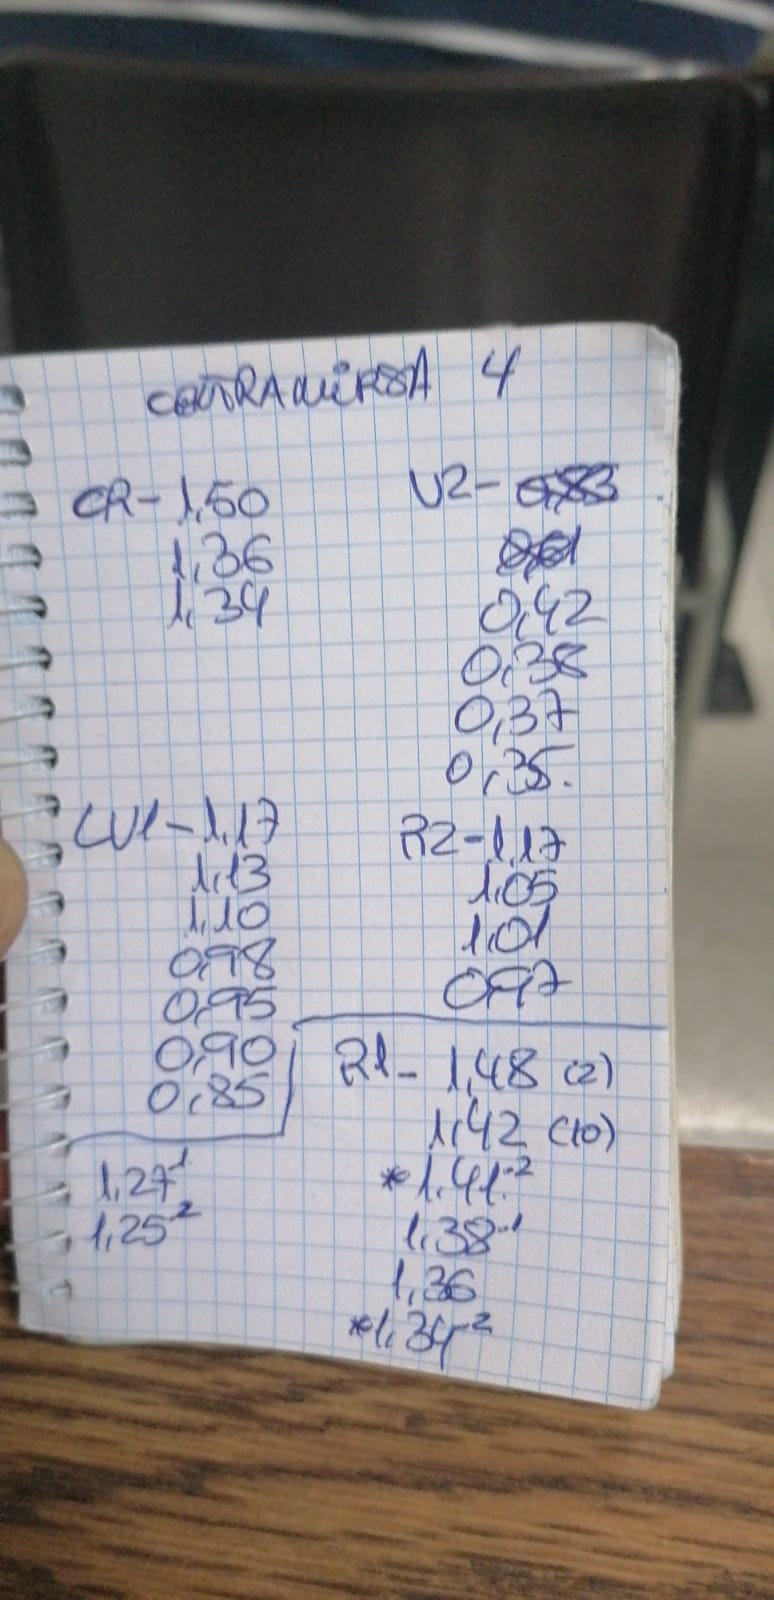 CONTRAMIRSA 4
CR- 1,50
1,36
1,34
V2- 0,83
0,61
0,42
0,38
0,37
0,35.
LV1- 1,17
1,13
1,10
0,98
0,95
0,90
0,85
R2- 1,17
1,05
1,01
0,97
1,27-1
1,25-2
R1- 1,48 (2)
1,42 (10)
*1,41-2
1,38-1
1,36
*1,34-2